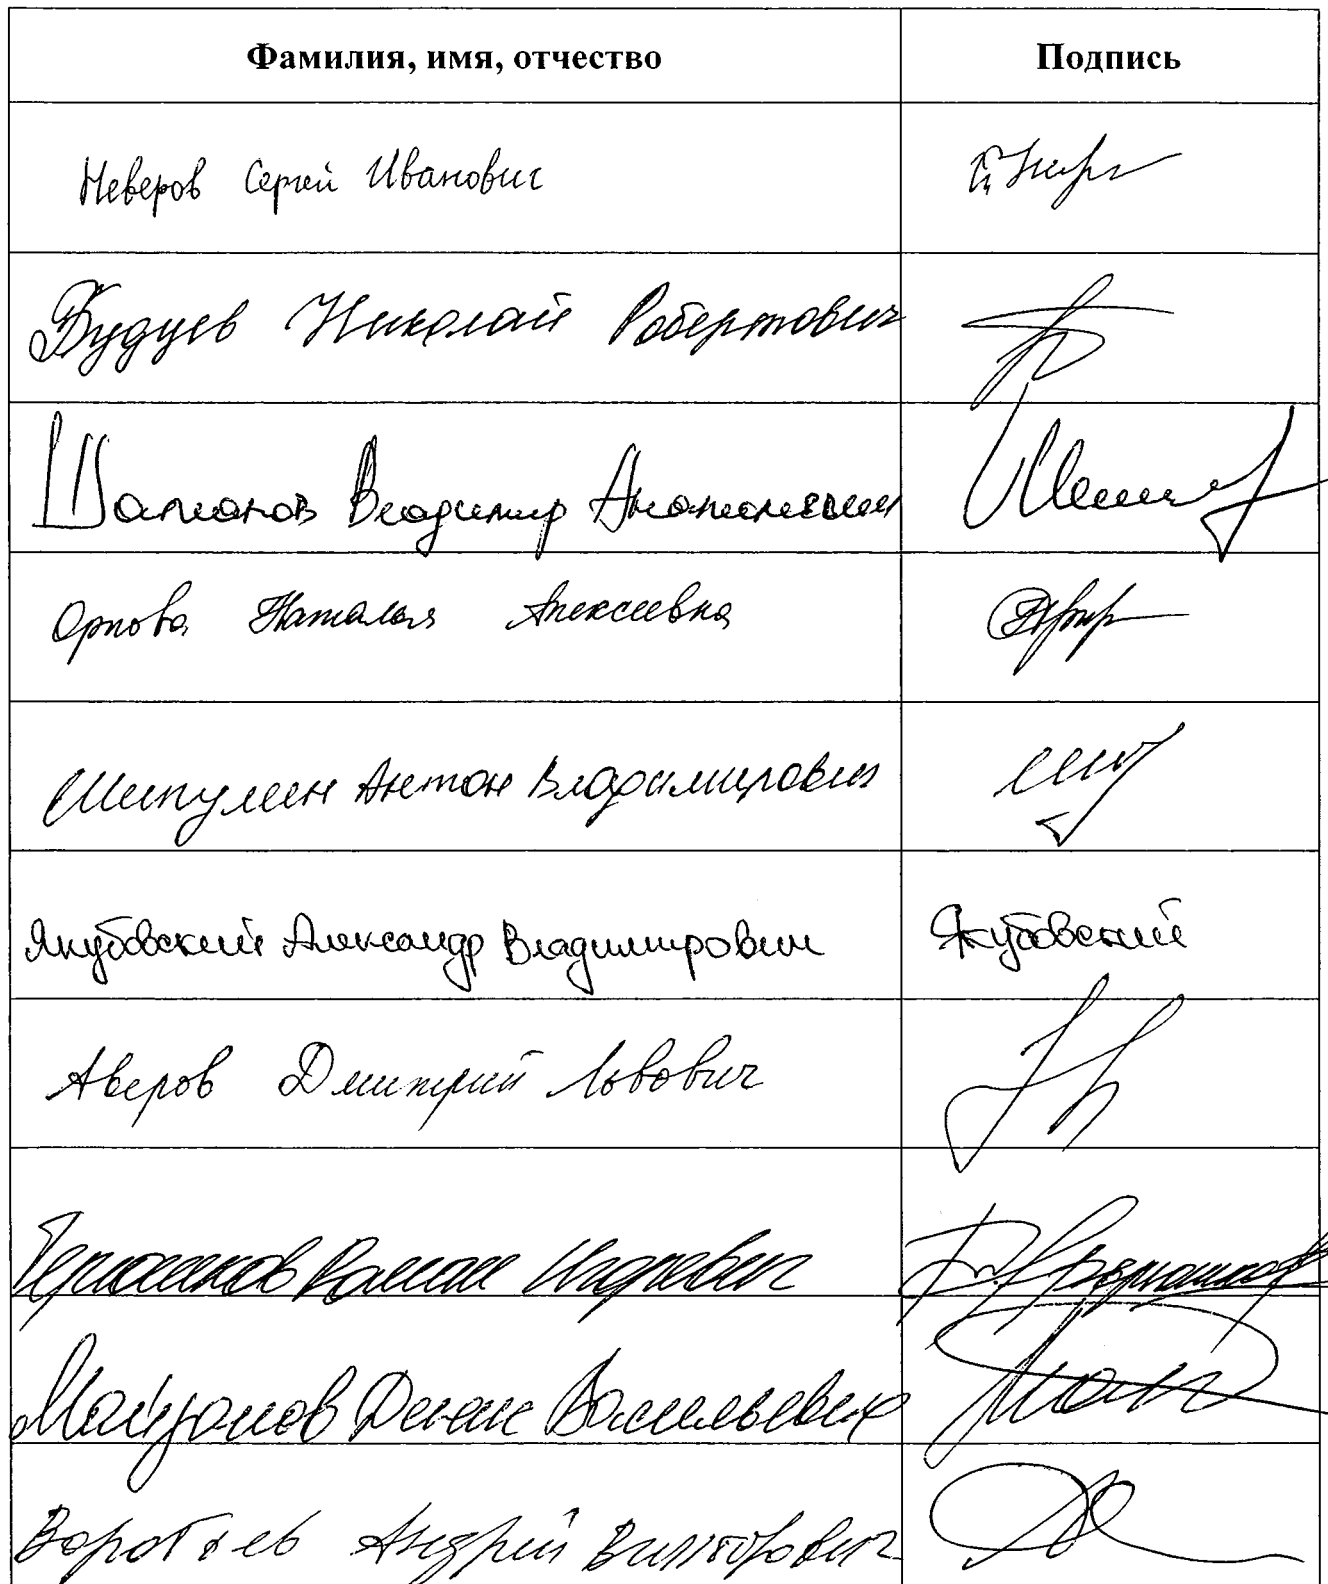 Фамилия, имя, отчество Подпись
Неверов Сергей Иванович
Будуев Николай Робертович
Шаманов Владимир Анатольевич
Орлова Наталья Алексеевна
Шипулин Антон Владимирович
Якубовский Александр Владимирович Якубовский
Аверов Дмитрий Львович
Романович Игоревич
Майданов Денис Васильевич
Воробьев Андрей Викторович